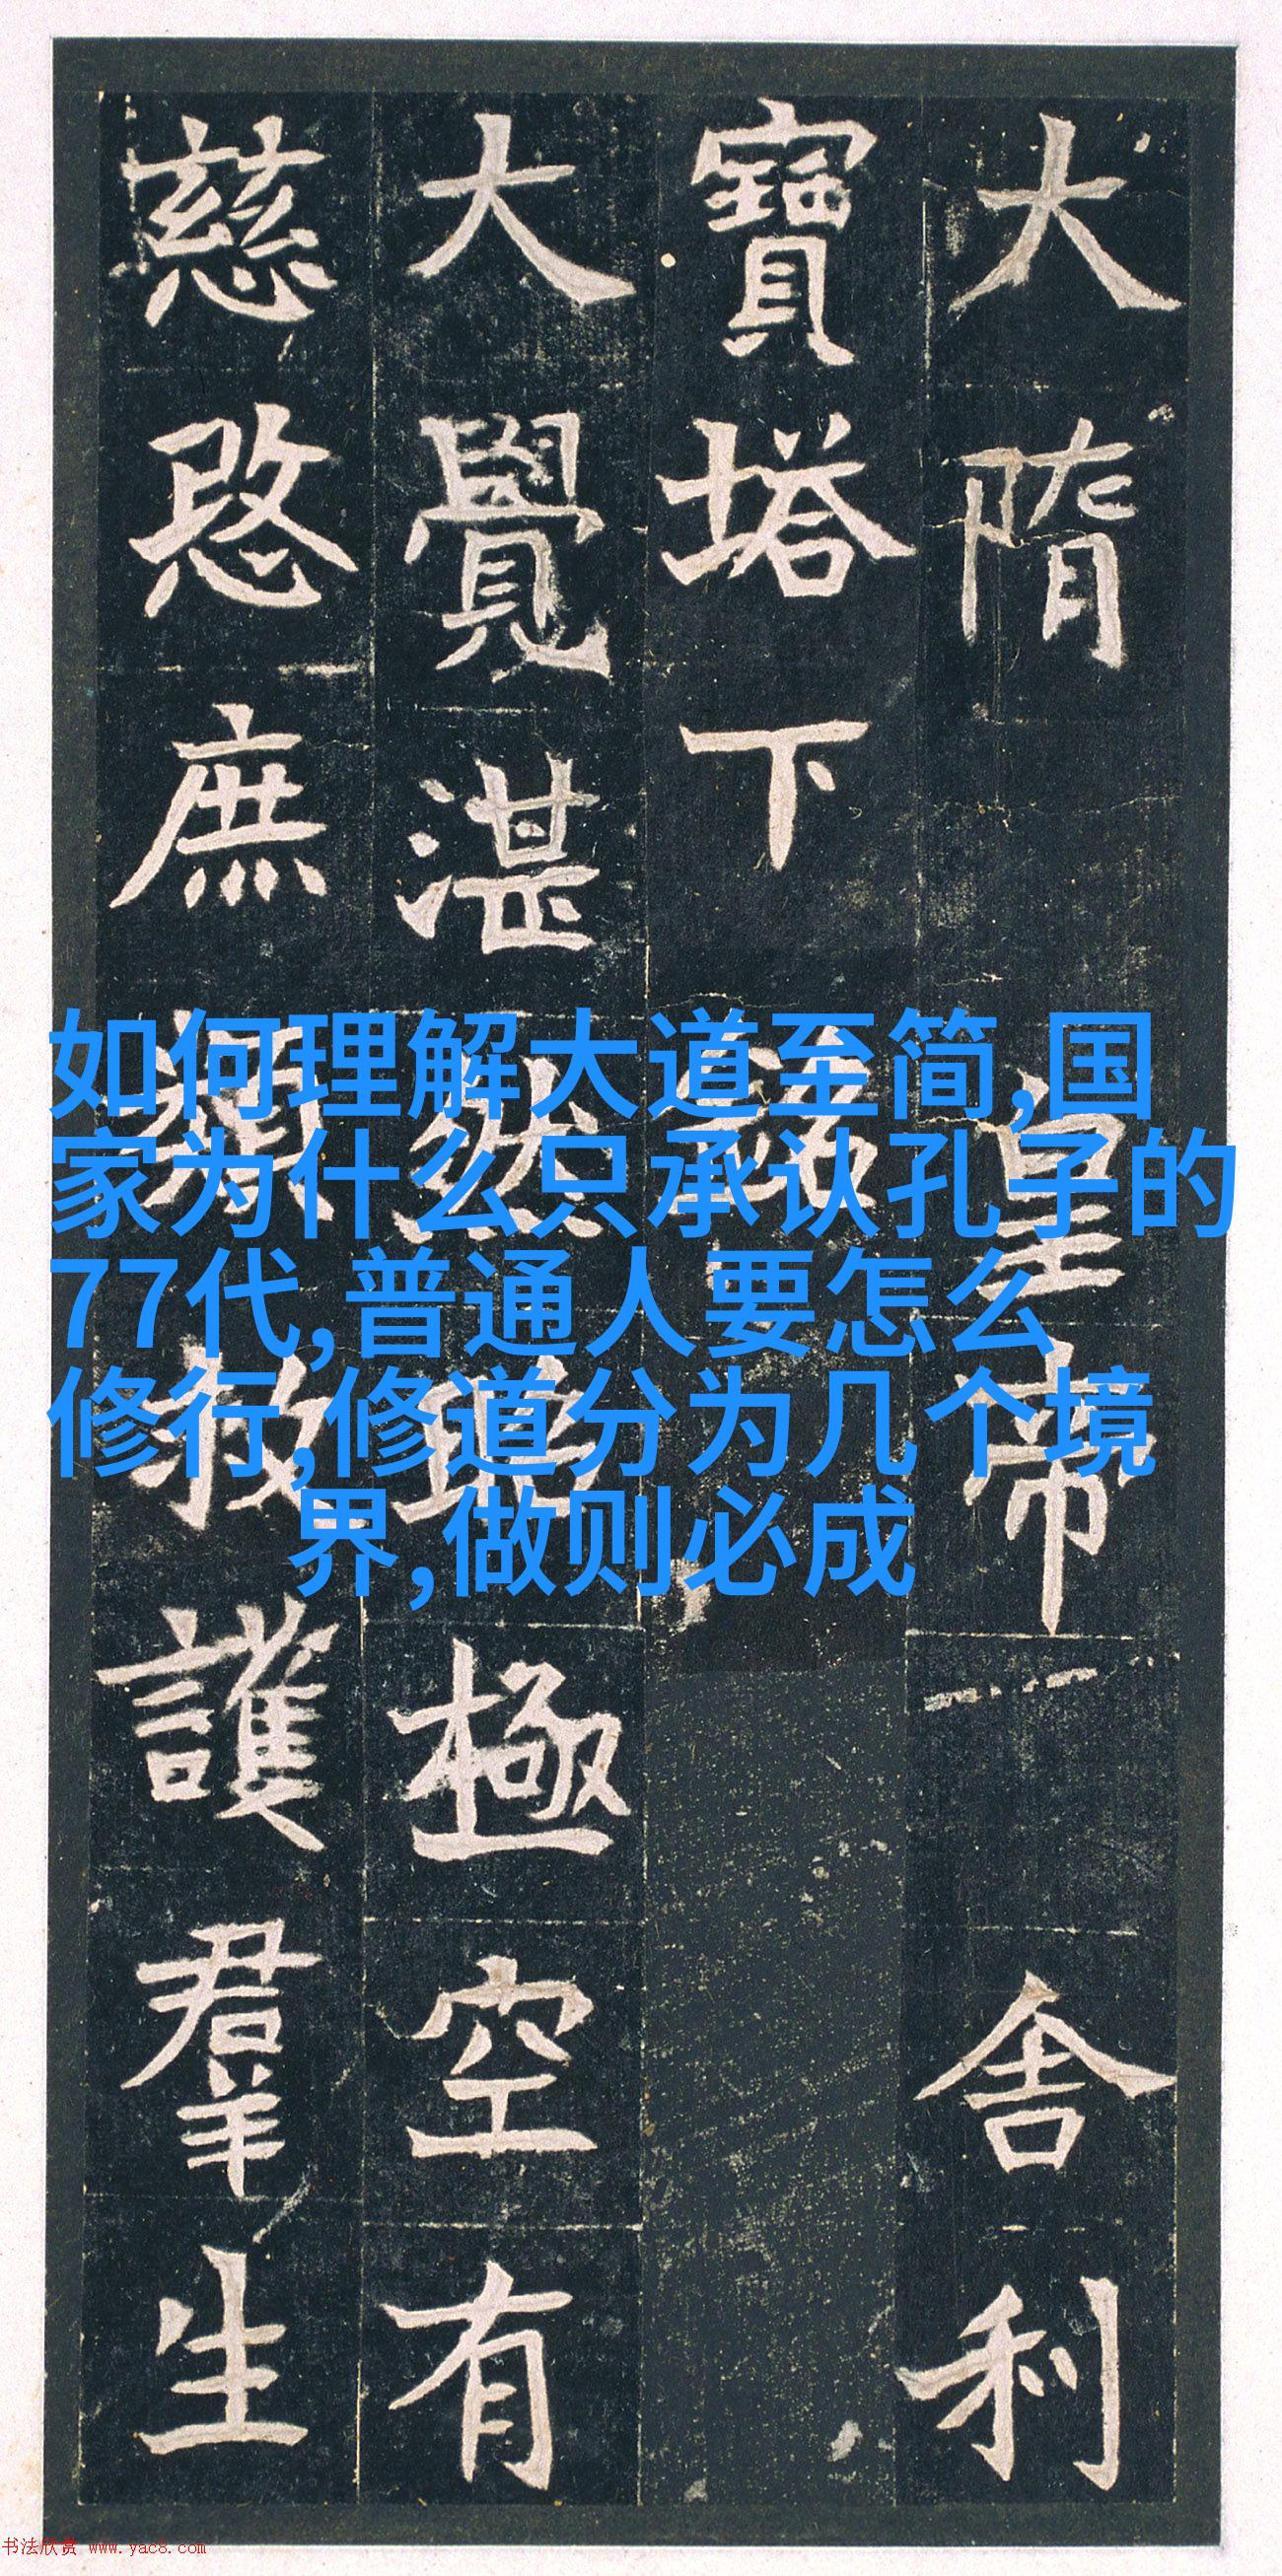 大隋皇帝舍利
寶塔下銘
大覺湛然極空有
慈愍庶類救護羣生
如何理解大道至简,国
家为什么只承认孔子的
77代,普通人要怎么
修行,修道分为几个境
界,做则必成
书法欣赏 www.yac8.com